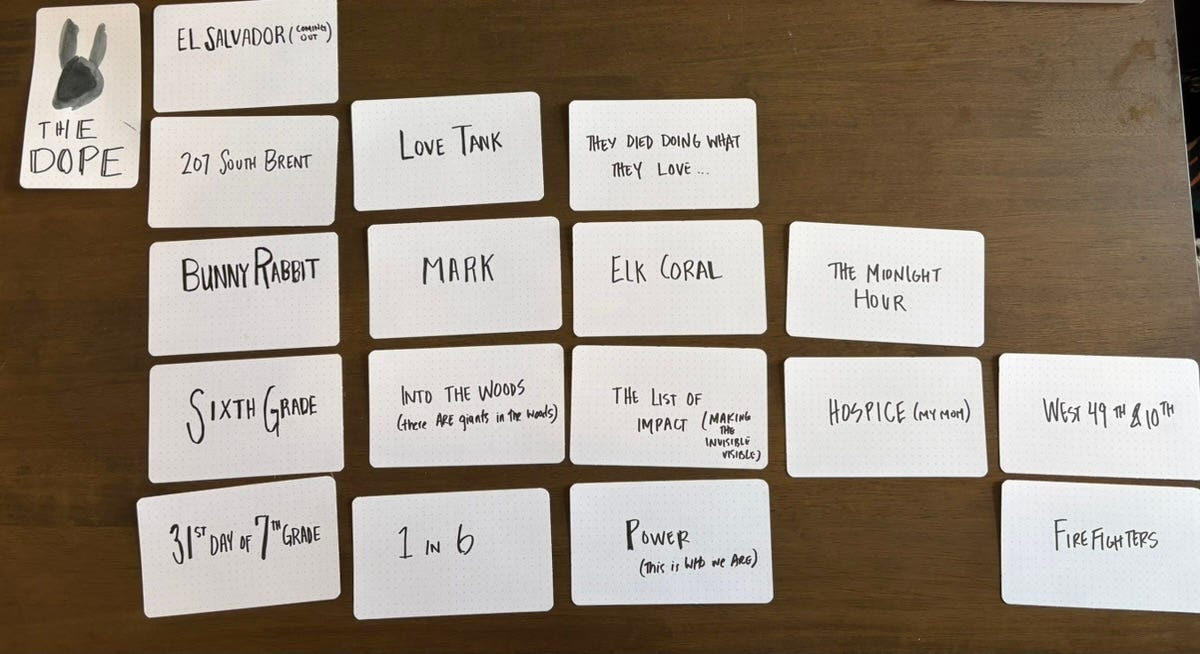 THE
DOPE
EL SALVADOR (COMING
OUT)
207 SOUTH BRENT
LOVE TANK
THEY DIED DOING WHAT
THEY LOVE...
BUNNY RABBIT
MARK
ELK CORAL
THE MIDNIGHT
HOUR
SIXTH GRADE
INTO THE WOODS
(there ARE giants in the woods)
THE LIST OF
IMPACT (MAKING
THE
INVISIBLE
VISIBLE)
HOSPICE (MY MOM)
WEST 49TH & 10TH
31ST DAY OF 7TH GRADE
1 IN 6
POWER
(This is WHO WE ARE)
FIREFIGHTERS